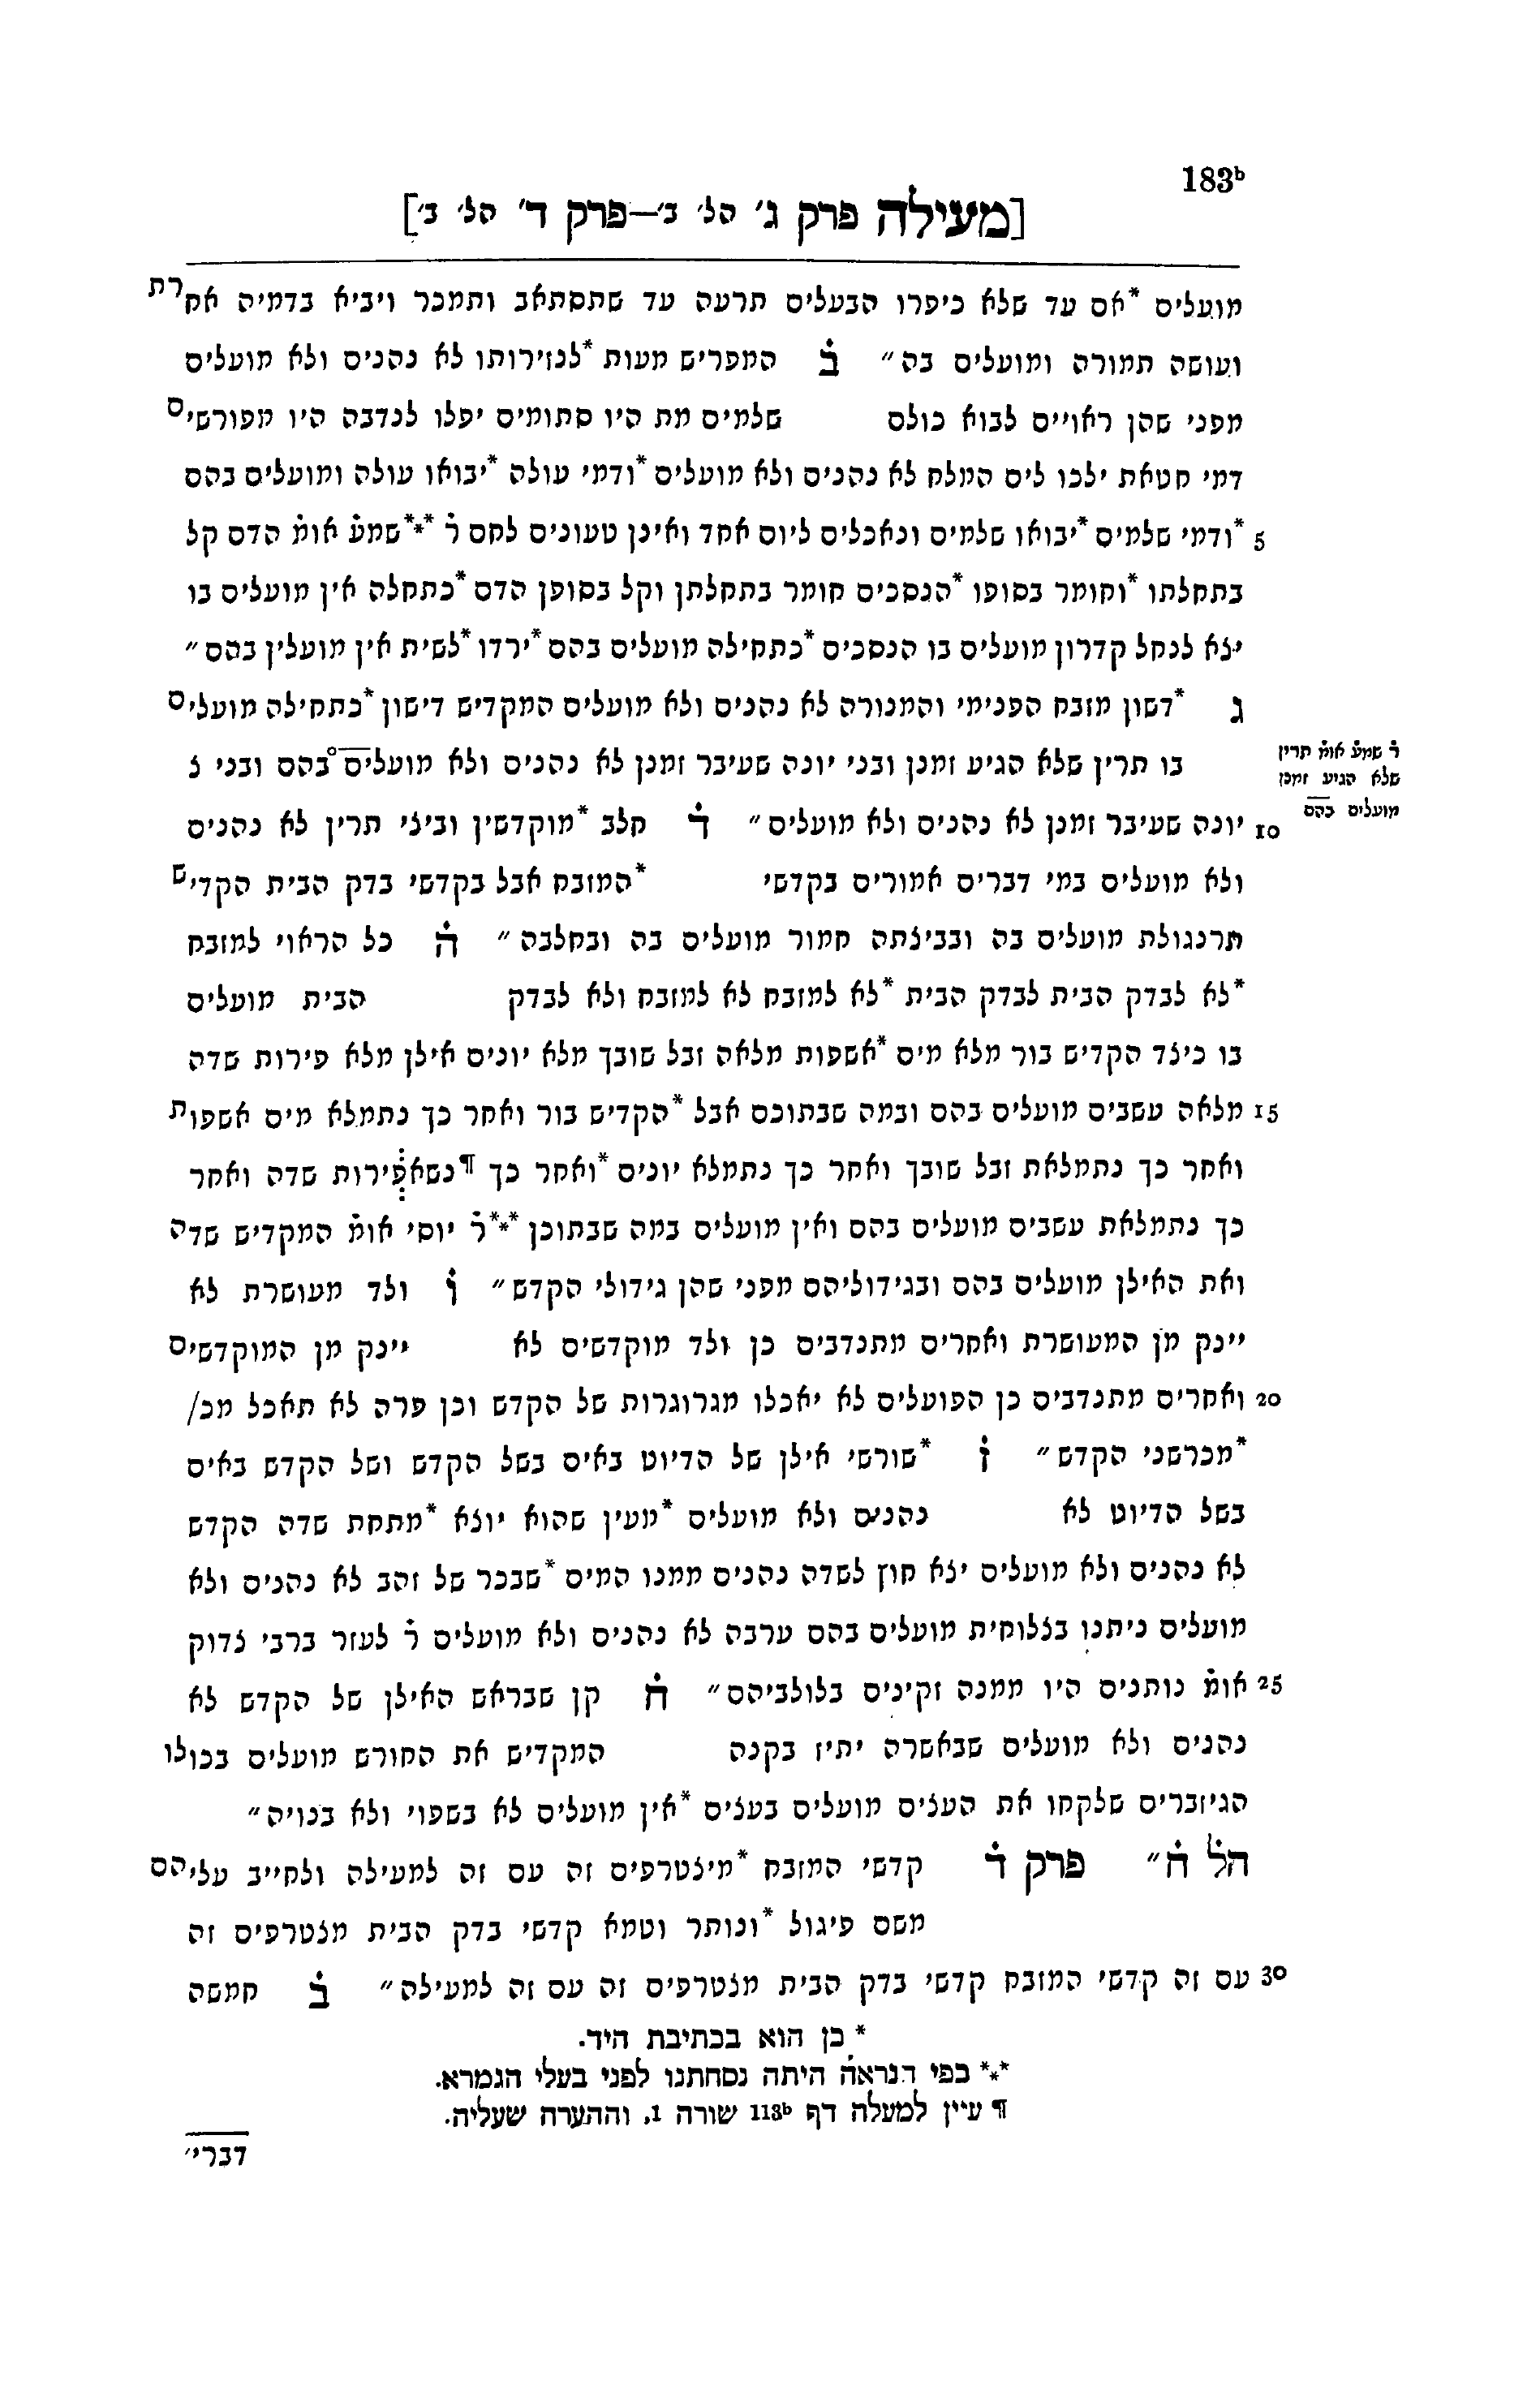 183b
[מעילה פרק ג׳ הל׳ ב׳—פרק ד׳ הל׳ ב׳]
מועלים *אם עד שלא כיפרו הבעלים תרעה עד שתסתאב ותמכר ויביא בדמיה אחרת
ועושה תמורה ומועלים בה״ ב̇ המפריש מעות *לנזירותו לא נהנים ולא מועלים
מפני שהן ראויים לבוא כולם שלמים מת היו סתומים יפלו לנדבה היו מפורשים
דמי חטאת ילכו לים המלח לא נהנים ולא מועלים *ודמי עולה *יבואו עולה ומועלים בהם
5 *ודמי שלמים *יבואו שלמים ונאכלים ליום אחד ואינן טעונים לחם ר̇ *⁎*שמע̇ אומ̇ הדם קל
בתחלתו *וחומר בסופו *הנסכים חומר בתחלתן וקל בסופן הדם *כתחלה אין מועלים בו
יצא לנחל קדרון מועלים בו הנסכים *כתחילה מועלים בהם *ירדו *לשית אין מועלין בהם״
ג *דשון מזבח הפנימי והמנורה לא נהנים ולא מועלים המקדיש דישון *כתחילה מועלים
בו תרין שלא הגיע זמנן ובני יונה שעיבר זמנן לא נהנים ולא מועלים°בהם ובני צ
ר̇ שמע̇ אומ̇ תרין
שלא הגיע זמנן
מועלים בהם
10 יונה שעיבר זמנן לא נהנים ולא מועלים״ ד̇ חלב *מוקדשין וביצי תרין לא נהנים
ולא מועלים במי דברים אמורים בקדשי *המזבח אבל בקדשי בדק הבית הקדיש
תרנגולת מועלים בה ובביצתה חמור מועלים בה ובחלבה״ ה̇ כל הראוי למזבח
*לא לבדק הבית לבדק הבית *לא למזבח לא למזבח ולא לבדק הבית מועלים
בו כיצד הקדיש בור מלא מים *אשפות מלאה זבל שובך מלא יונים אילן מלא פירות שדה
15 מלאה עשבים מועלים בהם ובמה שבתוכם אבל *הקדיש בור ואחר כך נתמלא מים אשפות
ואחר כך נתמלאת זבל שובך ואחר כך נתמלא יונים *ואחר כך ¶נשאפירות שדה ואחר
כך נתמלאת עשבים מועלים בהם ואין מועלים במה שבתוכן *⁎*ר̇ יוסי אומ̇ המקדיש שדה
ואת האילן מועלים בהם ובגידוליהם מפני שהן גידולי הקדש״ ו̇ ולד מעושרת לא
יינק מן המעושרת ואחרים מתנדבים כן ולד מוקדשים לא יינק מן המוקדשים
20 ואחרים מתנדבים כן הפועלים לא יאכלו מגרוגרות של הקדש וכן פרה לא תאכל מכ/
*מכרשני הקדש״ ז̇ *שורשי אילן של הדיוט באים בשל הקדש ושל הקדש באים
בשל הדיוט לא נהנים ולא מועלים *מעין שהוא יוצא *מתחת שדה הקדש
לא נהנים ולא מועלים יצא חוץ לשדה נהנים ממנו המים *שבכר של זהב לא נהנים ולא
מועלים ניתנו בצלוחית מועלים בהם ערבה לא נהנים ולא מועלים ר̇ לעזר ברבי צדוק
25 אומ̇ נותנים היו ממנה זקינים בלולביהם״ ח̇ קן שבראש האילן של הקדש לא
נהנים ולא מועלים שבאשרה יתיז בקנה המקדיש את החורש מועלים בכולו
הגיזברים שלקחו את העצים מועלים בעצים *אין מועלים לא בשפוי ולא בנויה״
הל̇ ח̇״ פרק ד̇ קדשי המזבח *מיצטרפים זה עם זה למעילה ולחייב עליהם
משם פיגול *ונותר וטמא קדשי בדק הבית מצטרפים זה
30 עם זה קדשי המזבח קדשי בדק הבית מצטרפים זה עם זה למעילה״ ב̇ חמשה
* כן הוא בכתיבת היד.
*⁎* כפי הנראה היתה נסחתנו לפני בעלי הגמרא.
¶ עיין למעלה דף 113b שורה 1, וההערה שעליה.
דברי׳